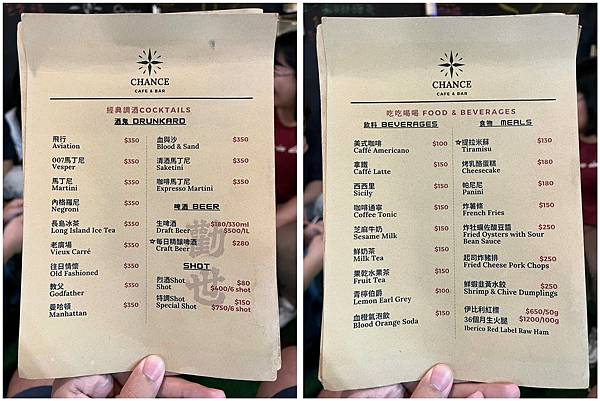 CHANCE
CAFE & BAR
經典調酒COCKTAILS
酒鬼 DRUNKARD
飛行 $350
Aviation
007馬丁尼 $350
Vesper
馬丁尼 $350
Martini
內格羅尼 $350
Negroni
長島冰茶 $350
Long Island Ice Tea
老廣場 $350
Vieux Carré
往日情懷 $350
Old Fashioned
教父 $350
Godfather
曼哈頓 $350
Manhattan
血與沙 $350
Blood & Sand
清酒馬丁尼 $350
Saketini
咖啡馬丁尼 $350
Expresso Martini
啤酒 BEER
生啤酒 $180/330ml
Draft Beer $500/L
☆每日精釀啤酒 $280
Craft Beer
勸世
SHOT
烈酒Shot $80
Shot $400/6 shot
特調Shot $150
Special Shot $750/6 shot
CHANCE
CAFE & BAR
吃吃喝喝 FOOD & BEVERAGES
飲料 BEVERAGES
美式咖啡 $100
Caffé Americano
拿鐵 $150
Caffé Latte
西西里 $150
Sicily
咖啡通寧 $150
Coffee Tonic
芝麻牛奶 $150
Sesame Milk
鮮奶茶 $150
Milk Tea
果乾水果茶 $150
Fruit Tea
青檸伯爵 $100
Lemon Earl Grey
血橙氣泡飲 $150
Blood Orange Soda
食物 MEALS
☆提拉米蘇 $150
Tiramisu
烤乳酪蛋糕 $180
Cheesecake
帕尼尼 $180
Panini
炸薯條 $150
French Fries
炸牡蠣佐酸豆醬 $250
Fried Oysters with Sour
Bean Sauce
起司炸豬排 $250
Fried Cheese Pork Chops
鮮蝦韭黃水餃 $250
Shrimp & Chive Dumplings
伊比利紅標 $650/50g
36個月生火腿 $1200/100g
Iberico Red Label Raw Ham